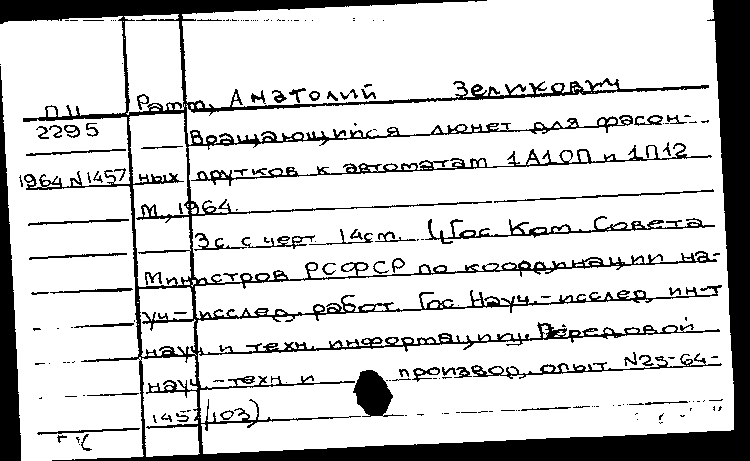 ПН Ратт, Анатолий Зеликович
2295 Вращающийся люнет для фасон-
1964 N1457 ных прутков к автоматам 1А10П и 1П12
М., 1964.
3с. с черт 14см. (Гос. Ком. Совета
Министров РСФСР по координации на-
уч.-исслед. работ. Гос Науч.-исслед. ин-т
науч и техн. информации. Передовой
науч.-техн и производ. опыт. N23-64-
1457/103).